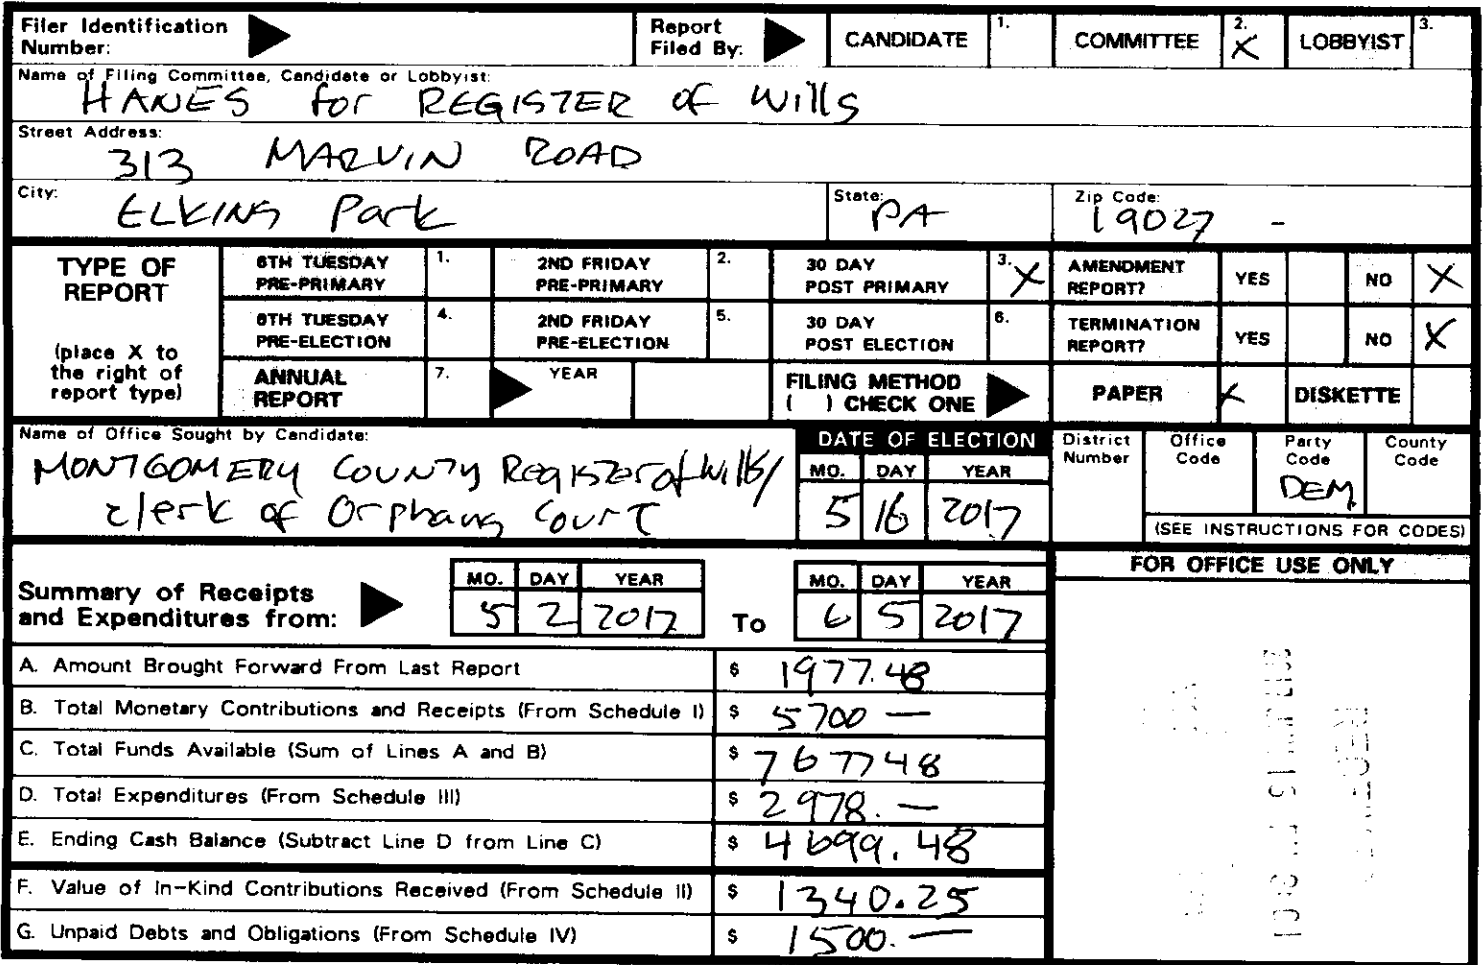 Filer Identification Number: Report Filed By: CANDIDATE 1. COMMITTEE 2. X LOBBYIST 3.
Name of Filing Committee, Candidate or Lobbyist:
HANES for REGISTER of Wills
Street Address:
313 MARVIN ROAD
City: ELKINS Park State: PA Zip Code: 19027 -
TYPE OF REPORT
(place X to the right of report type)
6TH TUESDAY PRE-PRIMARY 1. 2ND FRIDAY PRE-PRIMARY 2. 30 DAY POST PRIMARY 3. X AMENDMENT REPORT? YES NO X
6TH TUESDAY PRE-ELECTION 4. 2ND FRIDAY PRE-ELECTION 5. 30 DAY POST ELECTION 6. TERMINATION REPORT? YES NO X
ANNUAL REPORT 7. YEAR FILING METHOD ( ) CHECK ONE PAPER X DISKETTE
Name of Office Sought by Candidate:
MONTGOMERY COUNTY Register of Wills/
clerk of Orphans Court
DATE OF ELECTION
MO. DAY YEAR
5 16 2017
District Number Office Code Party Code County Code
DEM
(SEE INSTRUCTIONS FOR CODES)
Summary of Receipts and Expenditures from:
MO. DAY YEAR
5 2 2017
To
MO. DAY YEAR
6 5 2017
FOR OFFICE USE ONLY
A. Amount Brought Forward From Last Report $ 1977.48
B. Total Monetary Contributions and Receipts (From Schedule I) $ 5700 —
C. Total Funds Available (Sum of Lines A and B) $ 767748
D. Total Expenditures (From Schedule III) $ 2978. —
E. Ending Cash Balance (Subtract Line D from Line C) $ 4699.48
F. Value of In-Kind Contributions Received (From Schedule II) $ 1340.25
G. Unpaid Debts and Obligations (From Schedule IV) $ 1500. —